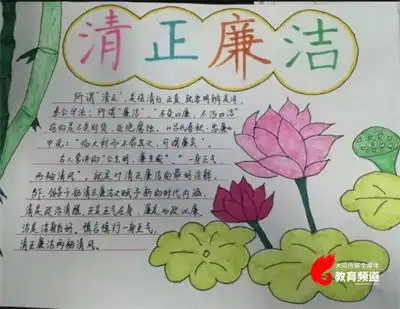 清正廉洁
所谓"清正",是指清白、正直,就要明辨是非、
奉公守法;所谓"廉洁","不受曰廉,不污曰洁"
指的是不贪财货,拒绝腐蚀。《吕氏春秋·忠廉》
中说:"临大利而不易其义,可谓廉矣"
古人常讲的"公生明,廉生威","一身正气,
两袖清风",就是对清正廉洁的最好诠释。
清正廉洁又赋予新的时代内涵
清是政治清醒,正是正气在身,廉是
洁是洁身自好。慎言慎行一身正气,
清正廉洁两袖清风。
大同传媒全媒体
教育频道